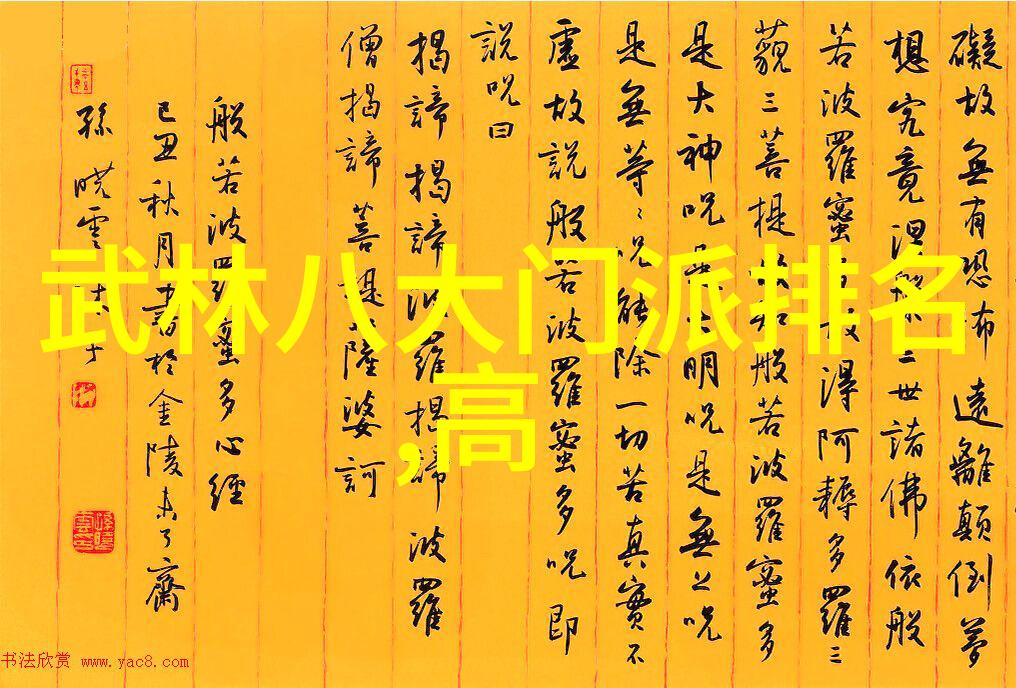 礙故無有恐布遠離顛倒夢
想究竟涅槃三世諸佛依般
若波羅蜜多故得阿耨多羅三
藐三菩提故知般若波羅蜜多
是大神咒是大明咒是無上咒
是無等〻咒能除一切苦真實不
虛故說般若波羅蜜多咒即
說咒曰
揭諦揭諦波羅揭諦波羅
僧揭諦菩提薩婆訶
般若波羅蜜多心經
己丑秋月書於金陵未了齋
孫曉雲沐手
武林八大门派排名
,高
书法欣赏 www.yac8.com